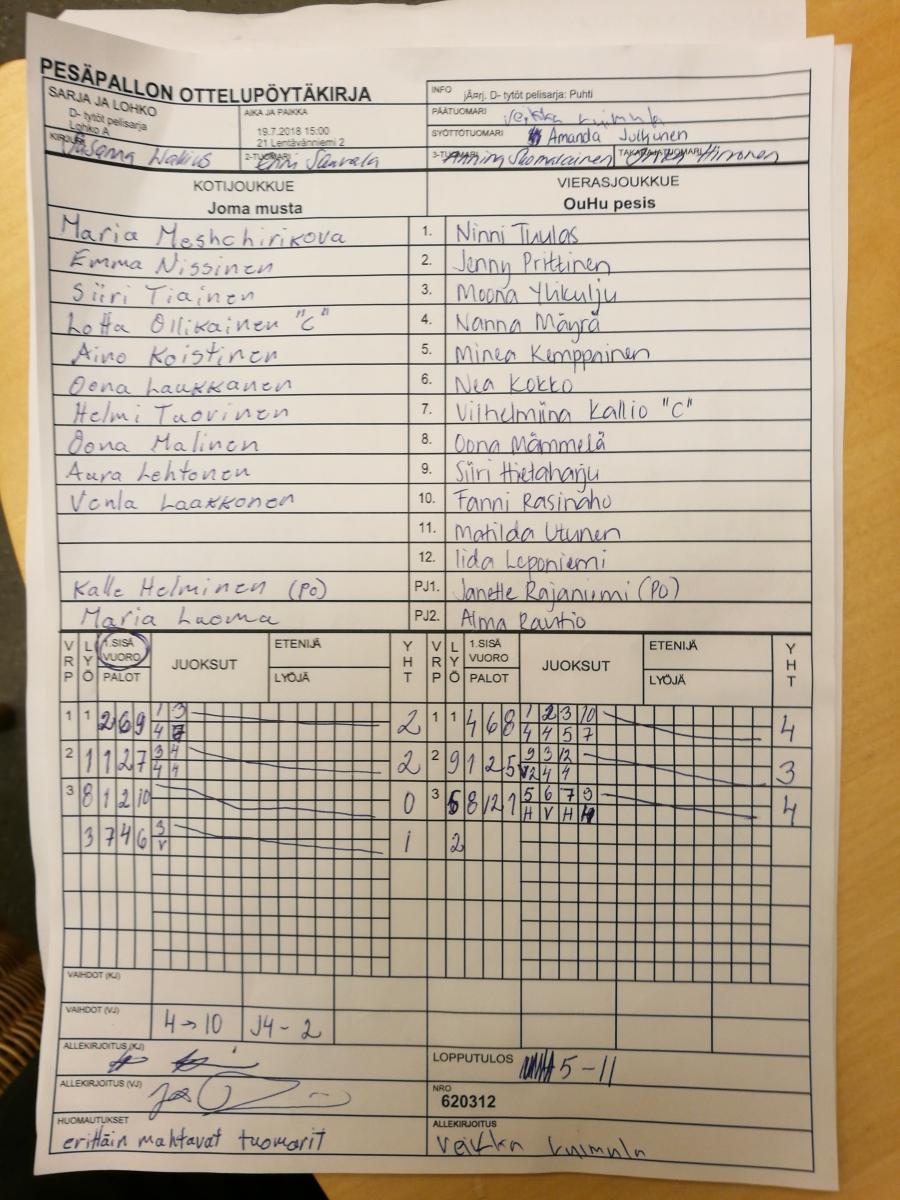 PESÄPALLON OTTELUPÖYTÄKIRJA
SARJA JA LOHKO
D- tytöt pelisarja
Lohko A
AIKA JA PAIKKA
19.7.2018 15:00
21 Lentävänniemi 2
INFO jÃ¤rj. D- tytöt pelisarja: Puhti
PÄÄTUOMARI Veikka Kuimula
SYÖTTÖTUOMARI Amanda Julkunen
KIRJURI Susanna
2-TUOMARI
3-TUOMARI Suomalainen TAKARAJATUOMARI Hirvonen
KOTIJOUKKUE VIERASJOUKKUE
Joma musta OuHu pesis
Maria Meshchirikova 1. Ninni Tuulos
Emma Nissinen 2. Jenny Prittinen
Siiri Tiainen 3. Moona Ylikulju
Lotta Ollikainen "C" 4. Nanna Mäyrä
Aino Koistinen 5. Minea Kemppainen
Oona Laukkanen 6. Nea Kokko
Helmi Tuovinen 7. Vilhelmiina Kallio "C"
Oona Malinen 8. Oona Mämmelä
Aura Lehtonen 9. Siiri Hietaharju
Venla Laakkonen 10. Fanni Rasinaho
11. Matilda Utunen
12. Iida Leponiemi
Kalle Helminen (PO) PJ1. Janette Rajaniemi (PO)
Maria Luoma PJ2. Alma Rautio
VRP LYÖ 1.SISÄ VUORO PALOT JUOKSUT ETENIJÄ LYÖJÄ YHT VRP LYÖ 1.SISÄ VUORO PALOT JUOKSUT ETENIJÄ LYÖJÄ YHT
1 1 2 6 9 1 3 2 1 1 4 6 8 1 2 3 10 4
4 4 4 5 7
2 1 1 2 7 3 4 2 2 9 1 2 5 9 3 12 3
4 4 V2 4 4
3 8 1 2 10 0 3 5 8 12 1 5 6 7 9 4
H V H H
3 7 4 6 3 1 2
V
VAIHDOT (KJ)
VAIHDOT (VJ) 4→10 J4-2
ALLEKIRJOITUS (KJ)
LOPPUTULOS 5-11
ALLEKIRJOITUS (VJ)
NRO
620312
HUOMAUTUKSET
erittäin mahtavat tuomarit
ALLEKIRJOITUS
Veikka Kuimula